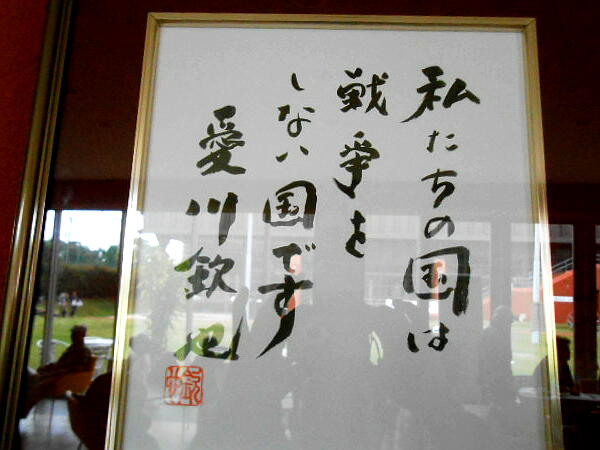 私たちの国は
戦争を
しない国です
愛川欽也
欽也